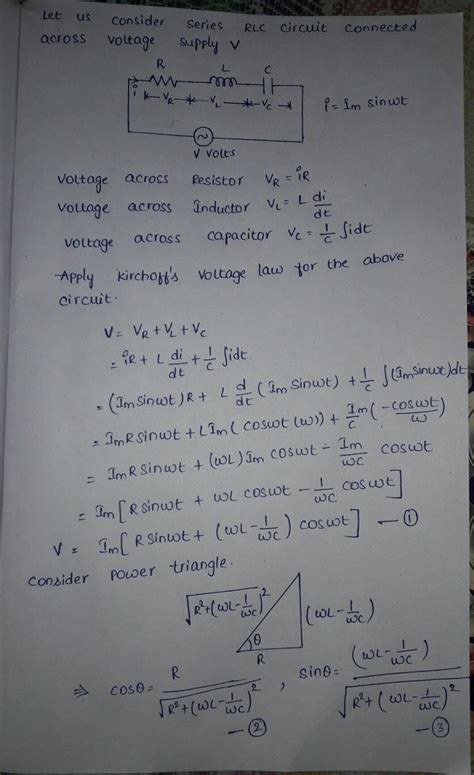 Let us consider series RLC circuit connected
across voltage supply V
R L C
i VR VL VC i = Im sinωt
V volts
voltage across Resistor VR = iR
voltage across Inductor VL = L di/dt
voltage across capacitor VC = 1/C ∫idt
Apply Kirchoff's voltage law for the above
circuit.
V = VR + VL + VC
= iR + L di/dt + 1/C ∫idt
= (Im sinωt)R + L d/dt (Im sinωt) + 1/C ∫(Im sinωt)dt
= ImR sinωt + LIm( cosωt (ω)) + Im/C (-cosωt/ω)
= ImR sinωt + (ωL)Im cosωt - Im/ωC cosωt
= Im[R sinωt + ωL cosωt - 1/ωC cosωt]
V = Im[R sinωt + (ωL - 1/ωC) cosωt] — ①
consider power triangle.
√R²+(ωL-1/ωC)² (ωL-1/ωC)
θ
R
⇒ cosθ = R/√R²+(ωL-1/ωC)² , sinθ = (ωL-1/ωC)/√R²+(ωL-1/ωC)²
— ② — ③